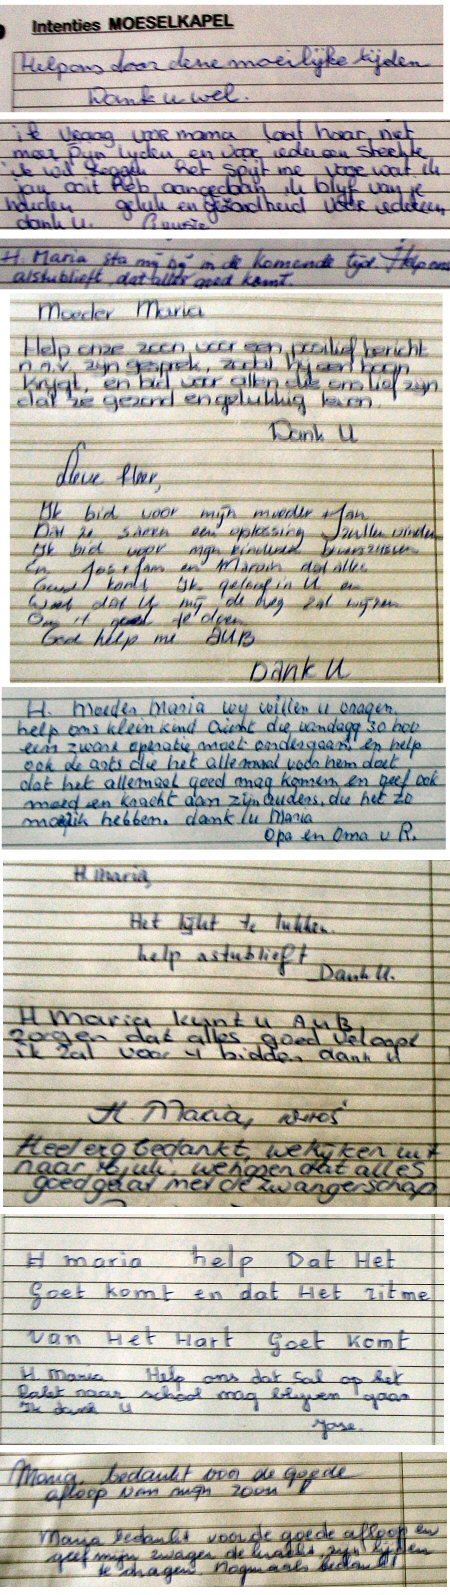 Intenties MOESELKAPEL
Help ons door deze moeilijke tijden
Dank u wel.
ik vraag voor mama laat haar niet
meer Pijn lyden en voor iedereen
Ik wil zeggen het spijt me voor wat ik
jou ooit heb aangedaan ik blyf van je
houden geluk en gezondheid voor iedereen
dank u.
H. Maria sta mij bij in de komende tijd Help ons
alstublieft, dat alles goed komt.
Moeder Maria
Help onze zoon voor een positief bericht
n.a.v. zijn gesprek, zodat hij een baan
krijgt, en bid voor allen die ons lief zijn
dat ze gezond en gelukkig leven.
Dank U
Lieve Heer,
Ik bid voor mijn moeder + Jan
Dat ze samen een oplossing zullen vinden
Ik bid voor mijn kinderen
En Jos + Jam en Marvin dat alles
Goed komt Ik geloof in U en
Weet dat U mij de weg zal wijzen
Om it goed te doen
God help me AUB
Dank U
H. Moeder Maria wy willen u vragen
help ons kleinkind die vandaag zo
een zware operatie moet ondergaan, en help
ook de arts die het allemaal voor hem doet
dat het allemaal goed mag komen en geef ook
moed en kracht aan zijn ouders, die het zo
moeilik hebben. dank u Maria
Opa en Oma v R.
H. Maria,
Het lijkt te lukken.
help astublieft
Dank U.
H Maria kunt u AUB
zorgen dat alles goed veloopt
ik zal voor u bidden dank u
H. Maria,
Heel erg bedankt, we kijken uit
naar juli, we hopen dat alles
goed gaat met de zwangerschap
H maria help Dat Het
Goet komt en dat Het ritme
van Het Hart Goet komt
H. Maria Help ons dat Sal op het
naar school mag blijven gaan
Ik dank U
Jose.
Maria, bedankt voor de goede
afloop van mijn zoon
Maria bedankt voor de goede afloop en
geef mijn zwager de kracht zijn lijden
te dragen. Nogmaals bedankt!